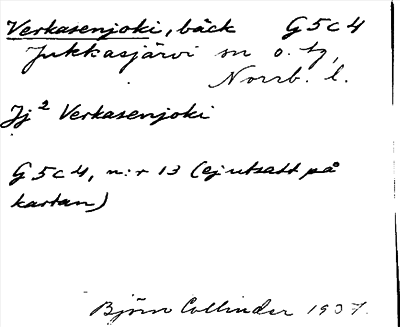 Verkasenjoki, bäck G5c4
Jukkasjärvi sn o. tg,
Norrb. l.
Jj² Verkasenjoki
G5c4, n:r 13 (ej utsatt på
kartan)
Björn Collinder 1937.